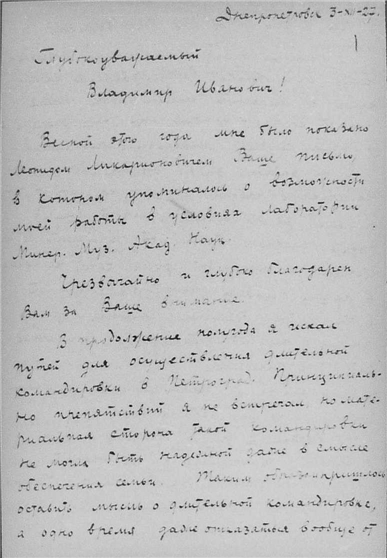 Днепропетровск 3-XII-27.
Глубокоуважаемый
Владимир Иванович!
Весной этого года мне было показано
Леонидом Ликарионовичем Ваше письмо,
в котором упоминалось о возможности
моей работы в условиях лаборатории
Минер. Муз. Акад. Наук.
Чрезвычайно и глубоко благодарен
Вам за Ваше внимание.
В продолжение полгода я искал
путей для осуществления длительной
командировки в Петроград. Принципиаль-
но препятствий я не встречал, но мате-
риальная сторона такой командировки
не могла быть надежной даже в смысле
обеспечения семьи. Таким образом пришлось
оставить мысль о длительной командировке,
а одно время даже отказаться вообще от